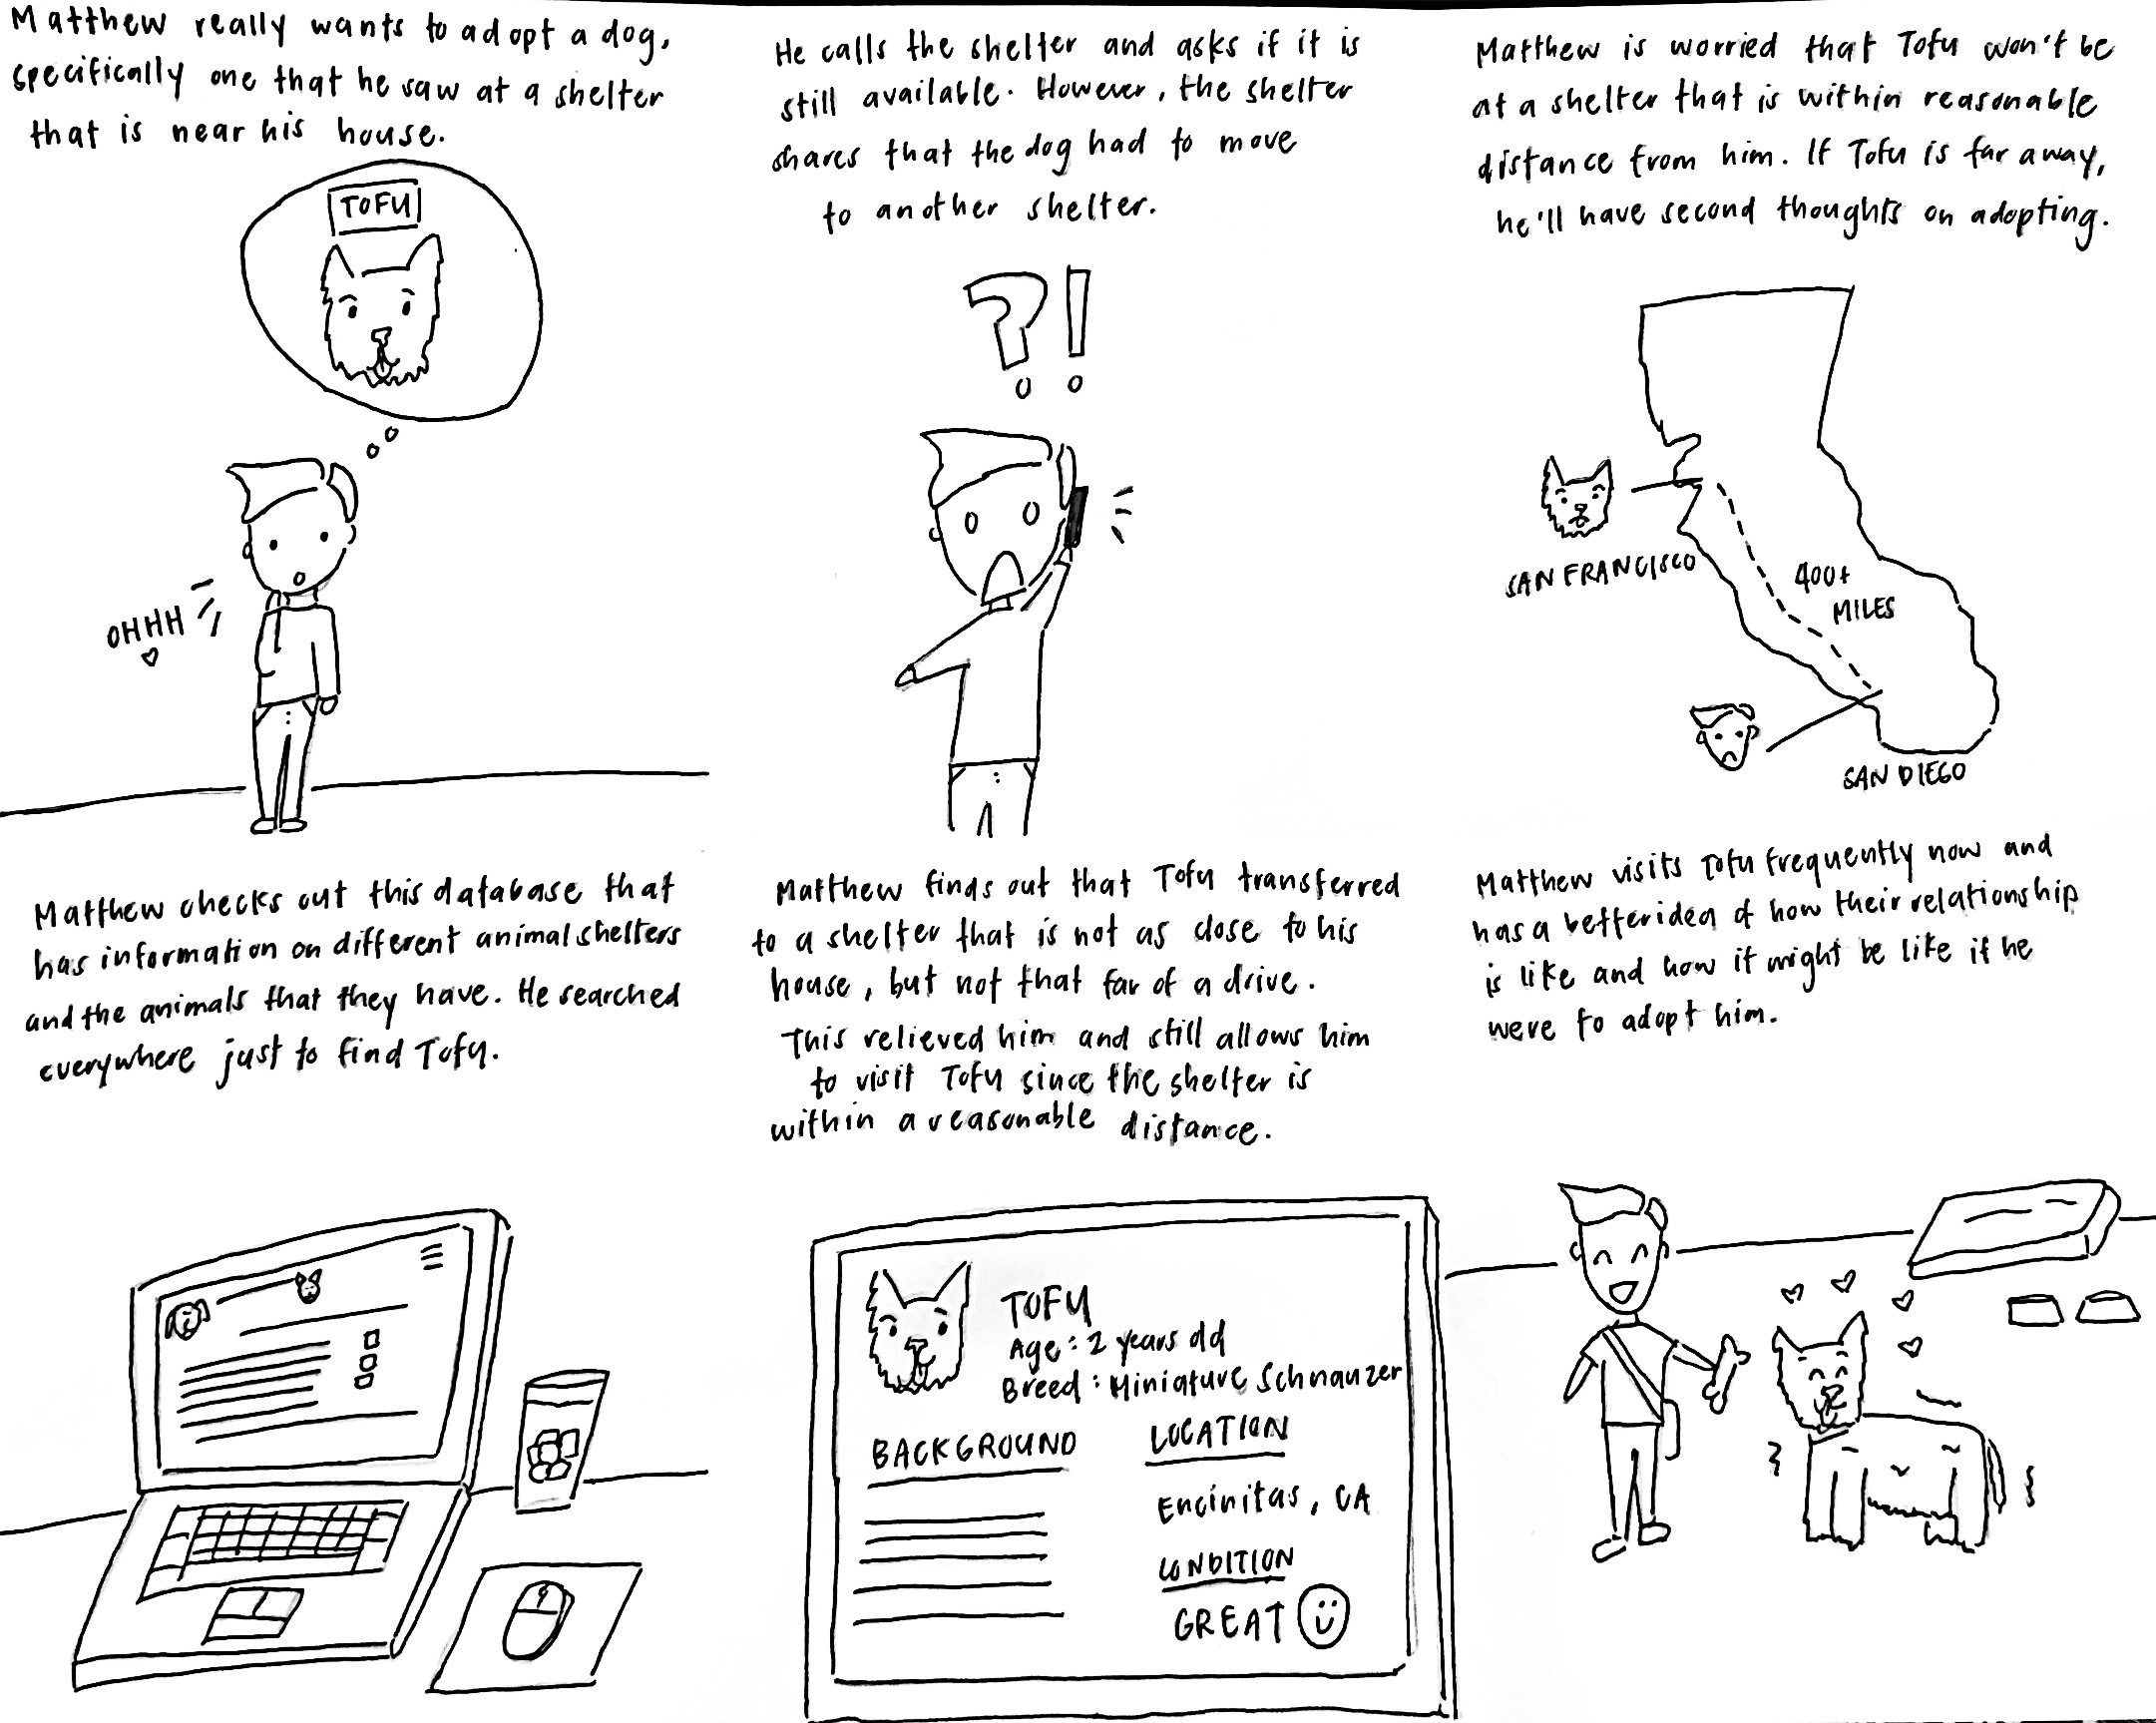 Matthew really wants to adopt a dog,
specifically one that he saw at a shelter
that is near his house.
TOFU
OHHH
He calls the shelter and asks if it is
still available. However, the shelter
shares that the dog had to move
to another shelter.
?!
Matthew is worried that Tofu won't be
at a shelter that is within reasonable
distance from him. If Tofu is far away,
he'll have second thoughts on adopting.
SAN FRANCISCO
400+
MILES
SAN DIEGO
Matthew checks out this database that
has information on different animal shelters
and the animals that they have. He searched
everywhere just to find Tofu.
Matthew finds out that Tofu transferred
to a shelter that is not as close to his
house, but not that far of a drive.
This relieved him and still allows him
to visit Tofu since the shelter is
within a reasonable distance.
TOFU
Age: 2 years old
Breed: Miniature Schnauzer
BACKGROUND
LOCATION
Encinitas, CA
CONDITION
GREAT
Matthew visits Tofu frequently now and
has a better idea of how their relationship
is like and how it might be like if he
were to adopt him.